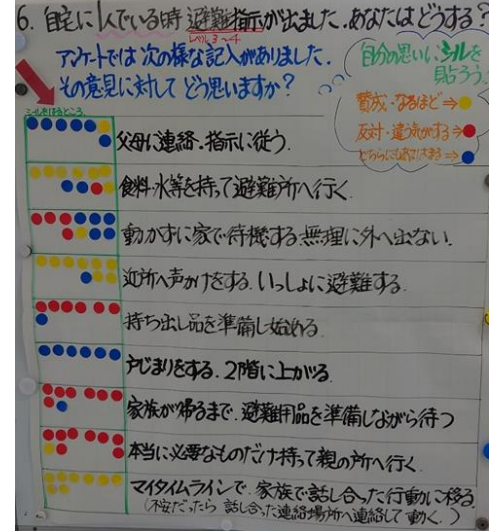 6. 自宅に1人でいる時 避難指示が出ました.あなたはどうする?
レベル3~4
アンケートでは次の様な記入がありました.
その意見に対して どう思いますか?
自分の思いいシルを
貼ろう!
賛成・なるほど⇒
反対・違う気がする⇒
どちらにもあてはまる⇒
シルをはるところ
父母に連絡・指示に従う.
飲料・水等を持って避難所へ行く.
動かずに家で待機する.無理に外へ出ない.
近所へ声かけをする.いっしょに避難する.
持ち出し品を準備し始める.
戸じまりをする.2階に上がる.
家族が帰るまで.避難用品を準備しながら待つ
本当に必要なものだけ持って親の所へ行く.
マイタイムラインで.家族で話し合った行動に移る
(不安だったら 話し合った連絡場所へ連絡して動く.)